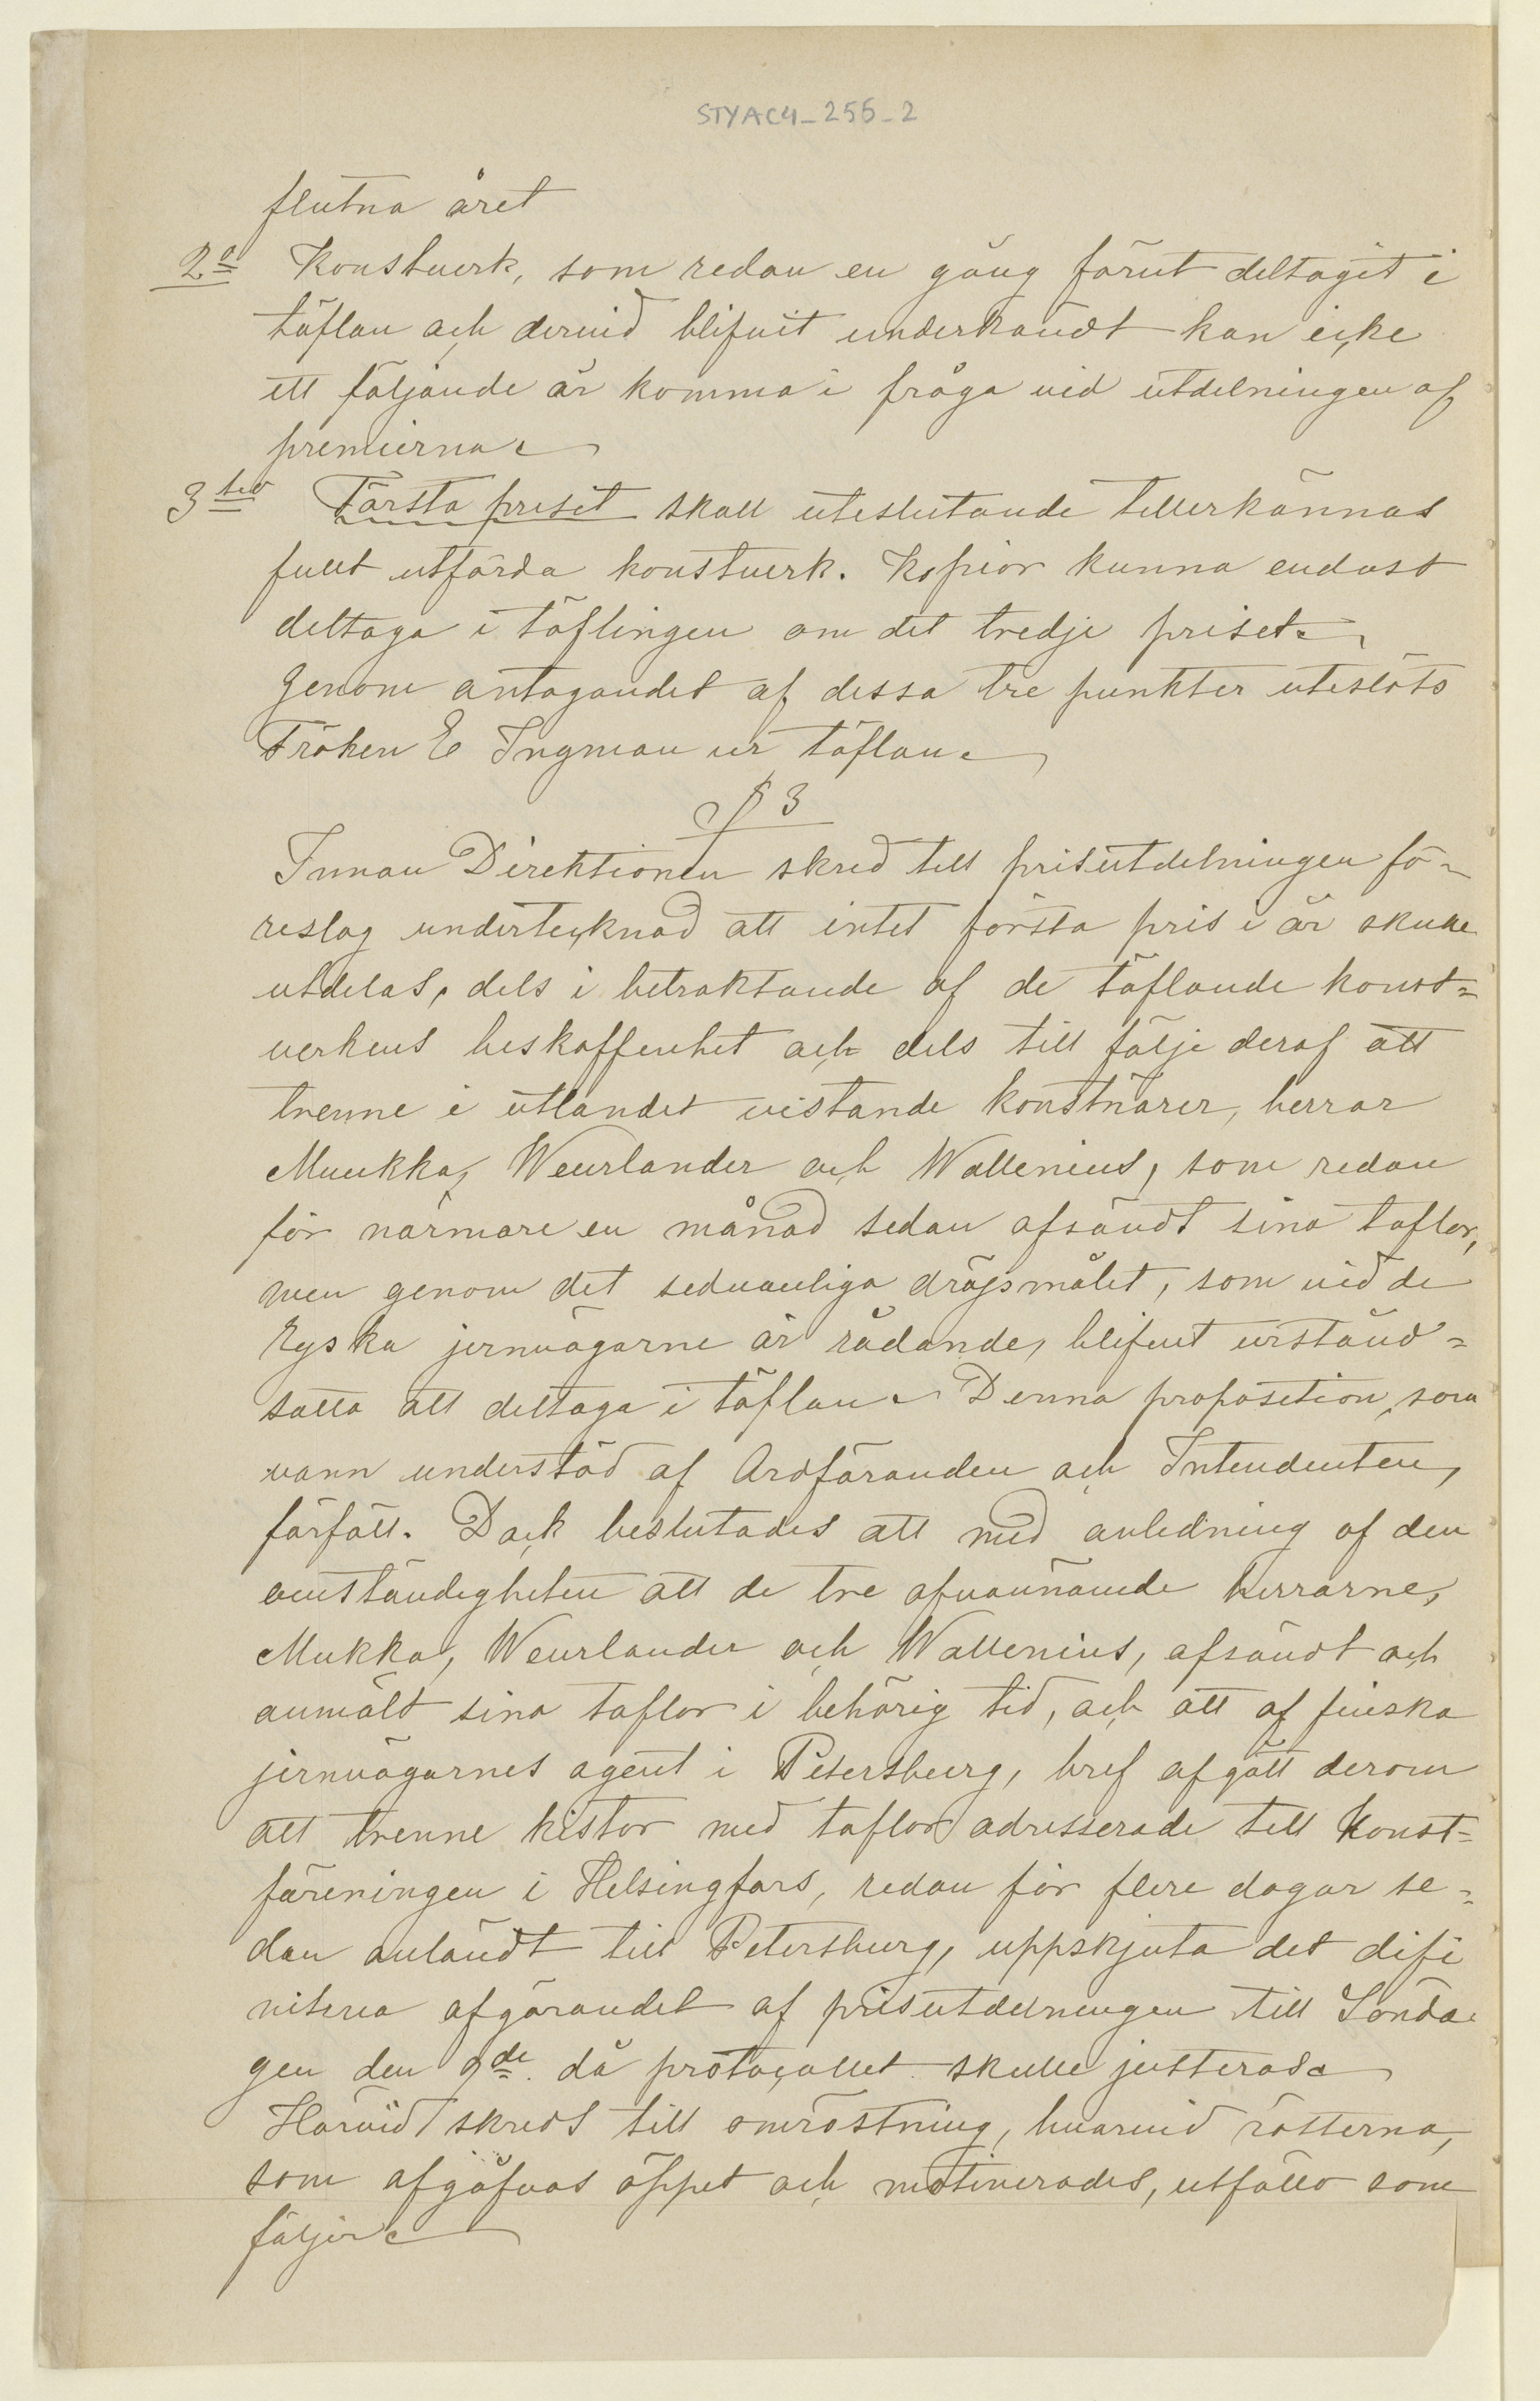 STYAC4_255_2
flutna året
2o Konstverk, som redan en gång förut deltagit i
täflan och dervid blifvit underkändt kan icke
ett följande år komma i fråga vid utdelningen af
premierna.
3tio Första priset skall uteslutande tillerkännas
fullt utförda konstverk. Kopior kunna endast
deltaga i täflingen om det tredje priset.
Genom antagandet af dessa tre punkter uteslöts
Fröken E Ingman ur täflan.
§ 3
Innan Direktionen skred till prisutdelningen fö-
reslog undertecknad att intet första pris i år skulle
utdelas, dels i betraktande af de täflande konst=
verkens beskaffenhet och dels till följe deraf att
trenne i utlandet vistande konstnärer, herrar
Muukka, Weurlander och Wallenius, som redan
för närmare en månad sedan afsändt sina taflor,
men genom det sedvanliga dröjsmålet, som vid de
Ryska jernvägarne är rådande, blifvit urstånd=
satta att deltaga i täflan. Denna proposition, som
vann understöd af Ordföranden och Intendenten,
förföll. Dock beslutades att med anledning af den
omständigheten att de tre ofvannämde herrarne,
Mukka, Weurlander och Wallenius, afsändt och
anmält sina taflor i behörig tid, och att af finska
jernvägarnes agent i Petersburg, bref afgått derom
att trenne kistor med taflor adresserade till Konst=
föreningen i Helsingfors, redan för flere dagar se=
dan anländt till Petersburg, uppskjuta det difi
nitiva afgörandet af prisutdelningen till Sönda-
gen den 9de. då protocollet skulle justeras.
Härvid skreds till omröstning, hvarvid rösterna,
som afgåfvos öppet och motiverades, utföllo som
följer.